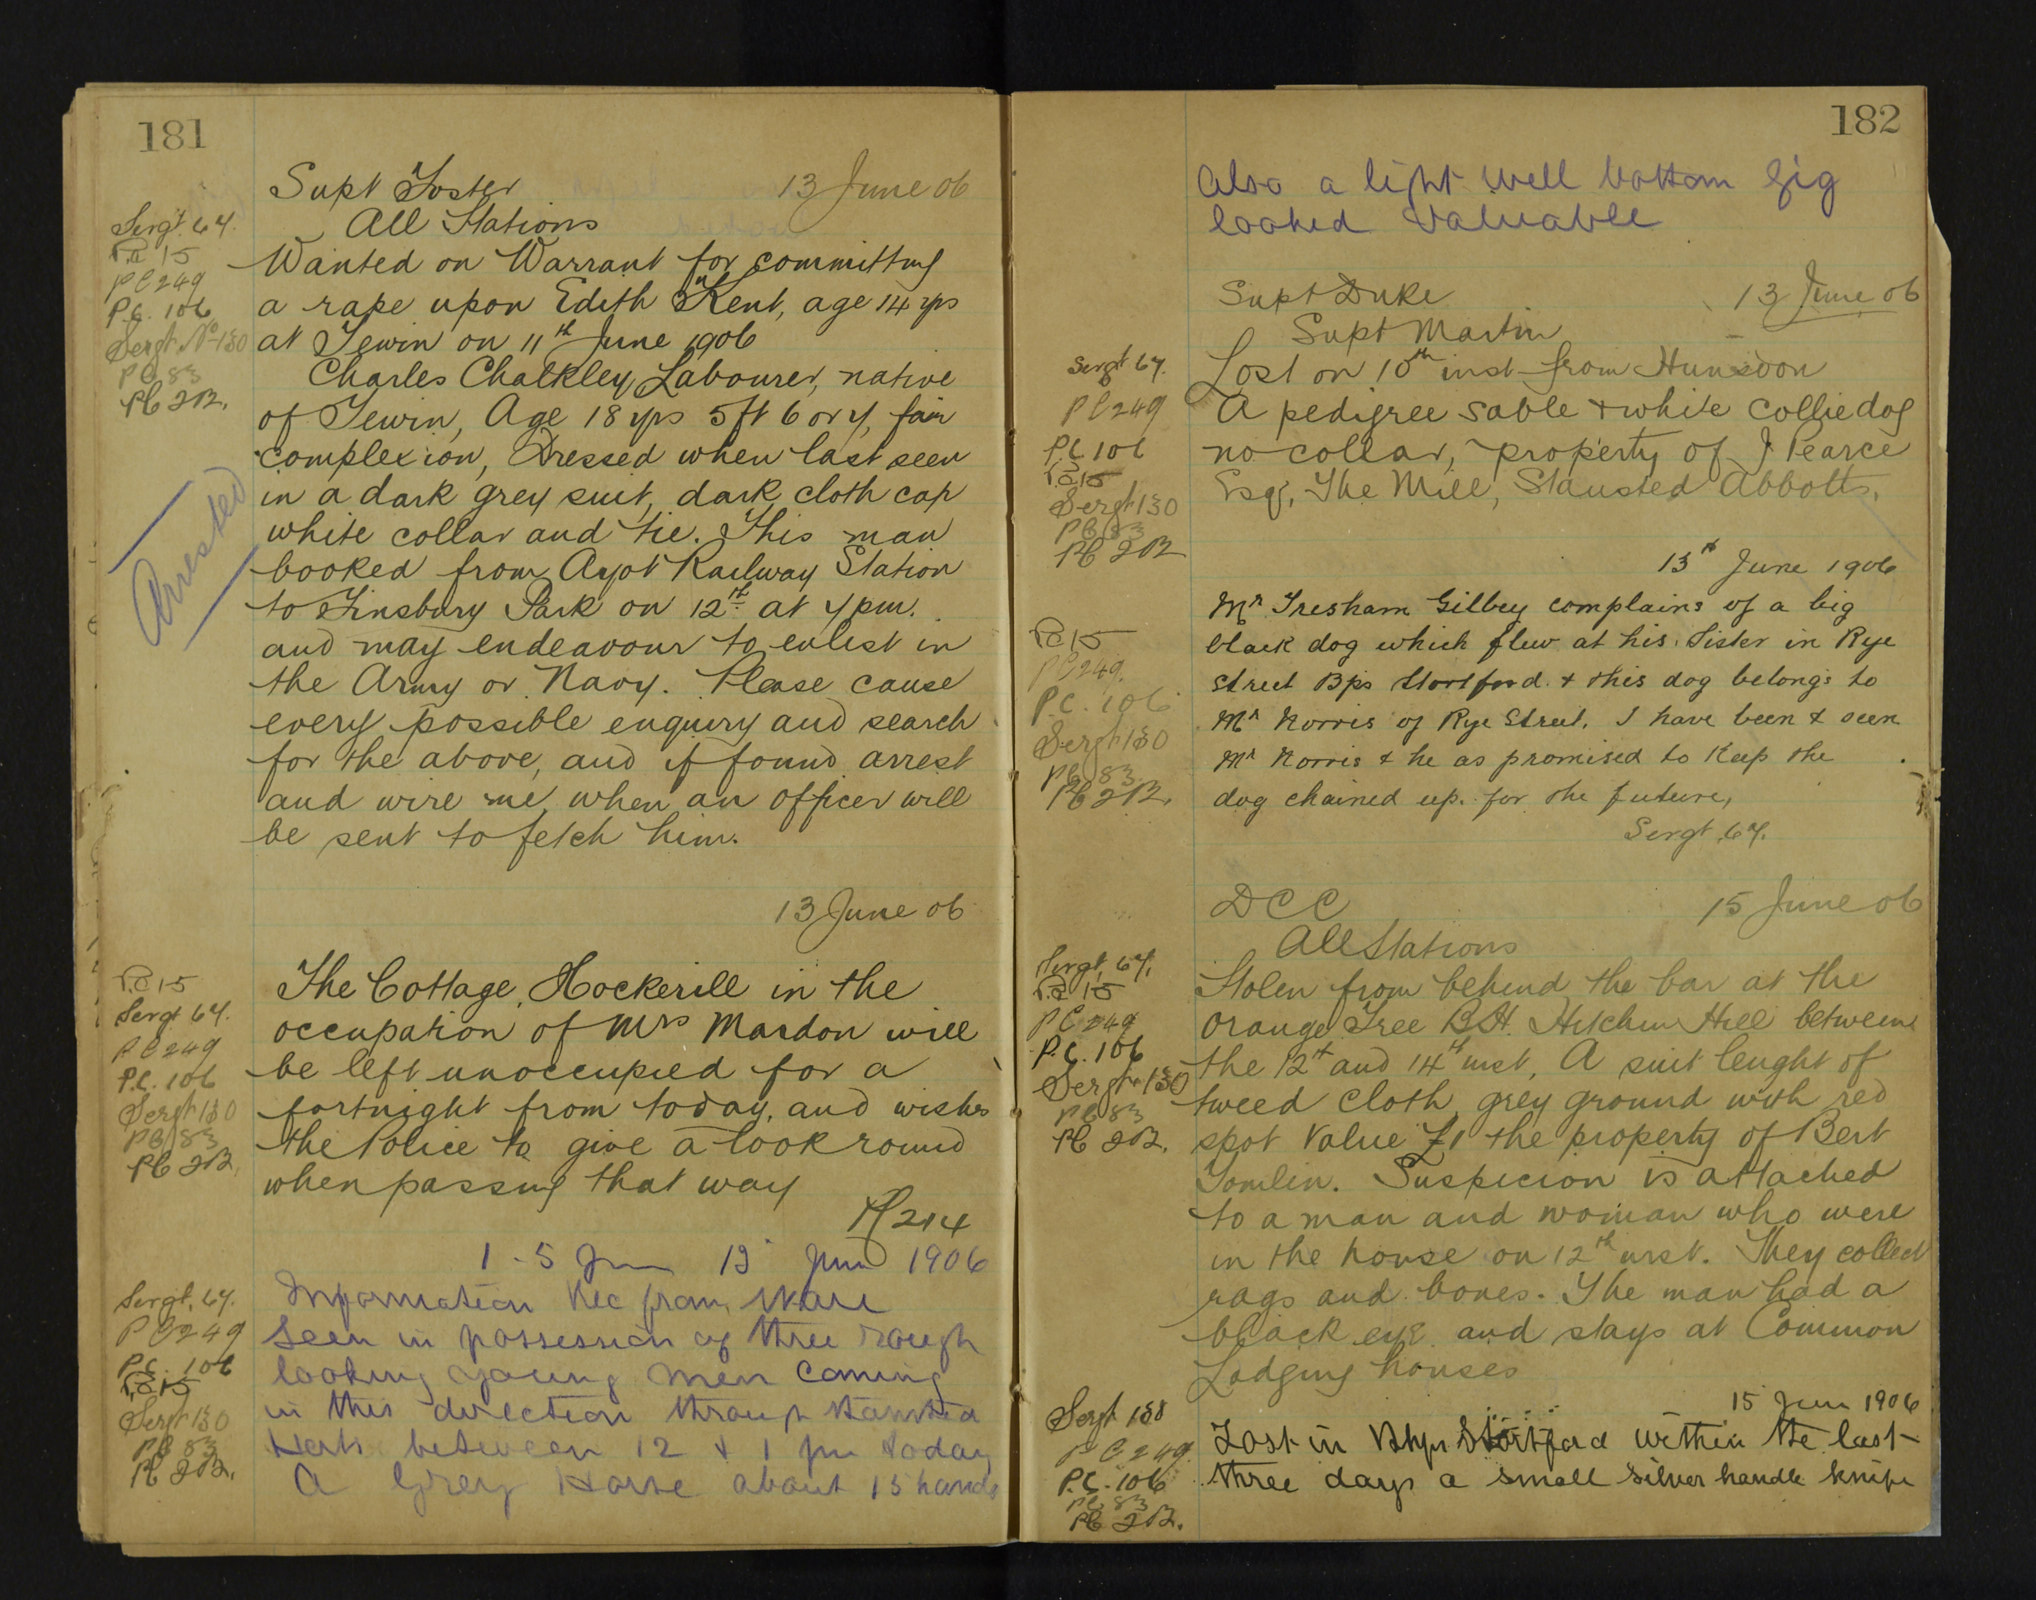 181
Supt Foster 13 June 06
All Stations
Sergt. 64.
P.C 15
PC 249
P.C. 106
Sergt No 130
PC 83
PC 202.
Wanted on Warrant for committing
a rape upon Edith Kent, age 14 yrs
at Tewin on 11th June 1906
Charles Chalkley, Labourer, native
of Tewin, Age 18 yrs 5 ft 6 or 7, fair
complexion, Dressed when last seen
in a dark grey suit, dark cloth cap
white collar and tie. This man
booked from Ayot Railway Station
to Finsbury Park on 12th at 7 pm.
and may endeavour to enlist in
the Army or Navy. Please cause
every possible enquiry and search
for the above, and if found arrest
and wire me, when an officer will
be sent to fetch him.
Arrested
13 June 06
P.C 15
Sergt 64.
PC 249
P.C. 106
Sergt 130
PC 83
PC 202.
The Cottage, Hockerill in the
occupation of Mrs Mardon will
be left unoccupied for a
fortnight from today, and wishes
the Police to give a look round
when passing that way
214
1-5 pm 13 June 1906
Sergt. 64.
PC 249
P.C. 106
P.C 15
Sergt 130
PC 83
PC 202.
Information Rec from Ware
Seen in possession of three rough
looking young men coming
in this direction through Stansted
Herts between 12 & 1 pm today
A Grey Horse about 15 hands
182
Also a light well bottom gig
looked valuable
Supt Duke 13 June 06
Supt Martin
Sergt 64.
PC 249
P.C 106
P.C 15
Sergt 130
PC 83
PC 202
Lost on 10th inst from Hunsdon
A pedigree sable & white collie dog
no collar, property of J Pearce
Esq, The Mill, Stansted Abbotts.
13th June 1906
P.C 15
PC 249.
P.C. 106
Sergt 130
PC 83.
PC 202.
Mr Tresham Gilbey complains of a big
black dog which flew at his Sister in Rye
Street Bps Stortford. & this dog belongs to
Mr Norris of Rye Street. I have been & seen
Mr Norris & he as promised to keep the
dog chained up. for the future,
Sergt. 64.
DCC 15 June 06
All Stations
Sergt. 64.
P.C 15
PC 249
P.C. 106
Sergt 130
PC 83
PC 202.
Stolen from behind the bar at the
Orange Tree B.H. Hitchin Hill between
the 12th and 14th inst, A suit lenght of
tweed cloth, grey ground with red
spot Value £1 the property of Bert
Tomlin. Suspicion is attached
to a man and woman who were
in the house on 12th inst. They collect
rags and bones. The man had a
black eye and stays at Common
Lodging houses
15 June 1906
Sergt 130
PC 249.
P.C. 106
PC 83
PC 202.
Lost in Bhps Stortford within the last
three days a small silver handle knife